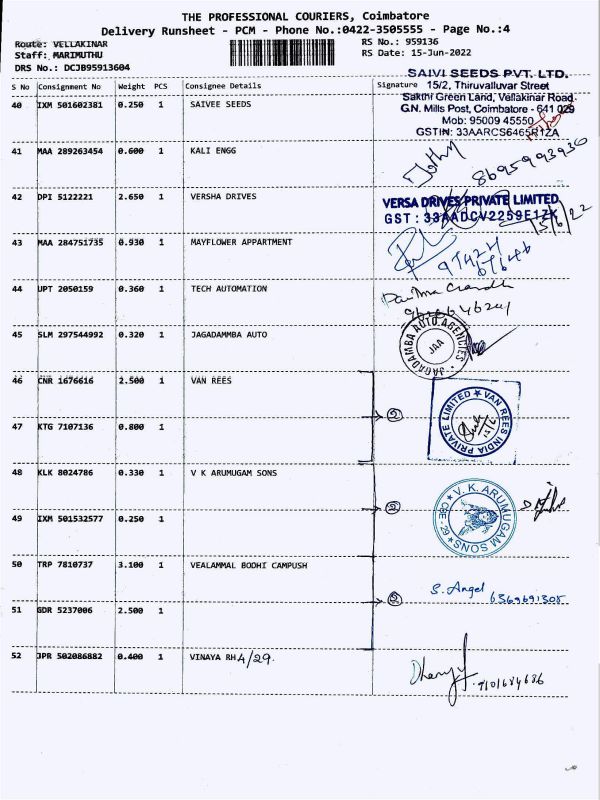 THE PROFESSIONAL COURIERS, Coimbatore
Delivery Runsheet - PCM - Phone No.:0422-3505555 - Page No.:4
Route: VELLAKINAR
Staff: MARIMUTHU
DRS No.: DCJB95913604
RS No.: 959136
RS Date: 15-Jun-2022
S No Consignment No Weight PCS Consignee Details Signature
SAIVI SEEDS PVT. LTD.
15/2, Thiruvalluvar Street
Sakthi Green Land, Vellakinar Road
G.N. Mills Post, Coimbatore - 641 029
Mob: 95009 45550
GSTIN: 33AARCS6465R1ZA
40 IXM 501602381 0.250 1 SAIVEE SEEDS
41 MAA 289263454 0.600 1 KALI ENGG
8695993930
42 DPI 5122221 2.650 1 VERSHA DRIVES
VERSA DRIVES PRIVATE LIMITED
GST : 33AADCV2259E1ZK
15/6/22
43 MAA 284751735 0.930 1 MAYFLOWER APPARTMENT
44 UPT 2050159 0.360 1 TECH AUTOMATION
45 SLM 297544992 0.320 1 JAGADAMMBA AUTO
JAGADAMBA AUTO AGENCIES
JAA
46 CNR 1676616 2.500 1 VAN REES
VAN REES INDIA PRIVATE LIMITED
47 KTG 7107136 0.800 1
48 KLK 8024786 0.330 1 V K ARUMUGAM SONS
V. K. ARUMUGAM SONS
CBE - 29
49 IXM 501532577 0.250 1
50 TRP 7810737 3.100 1 VEALAMMAL BODHI CAMPUSH
S. Angel
6369691305
51 GDR 5237006 2.500 1
52 JPR 502086882 0.400 1 VINAYA RH 4/29.
9101684686